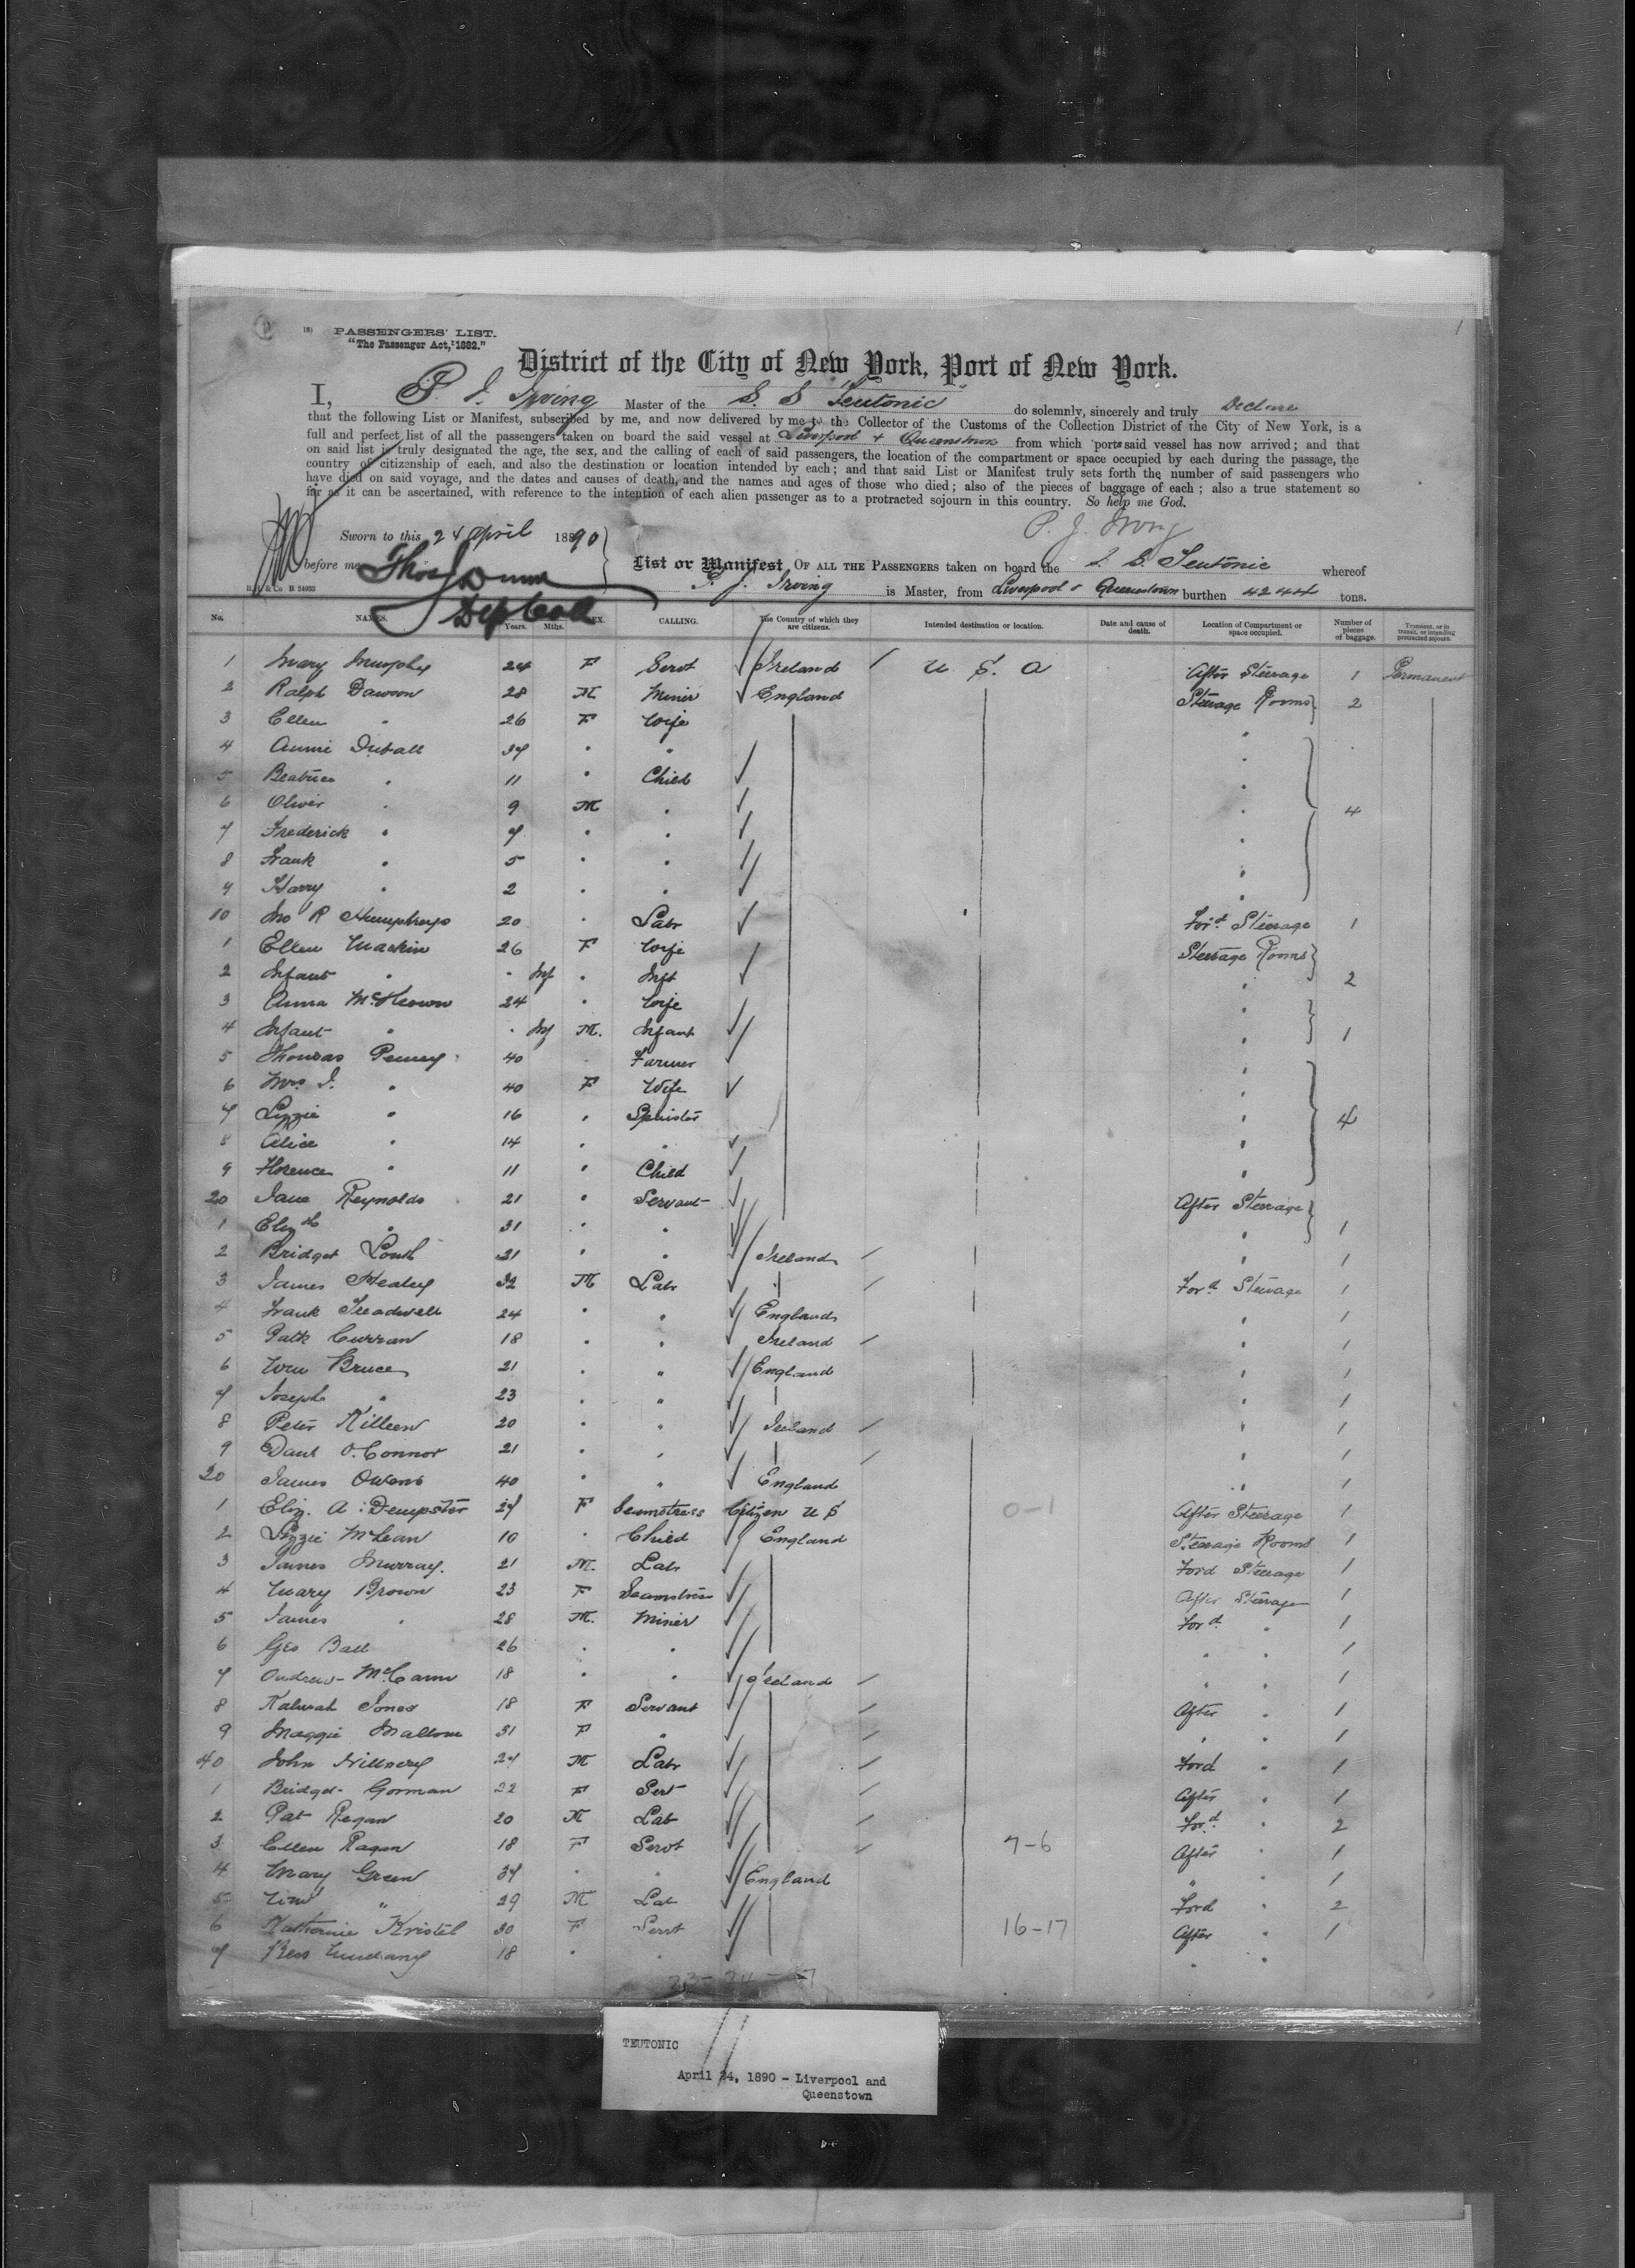 1
18) PASSENGERS' LIST.
"The Passenger Act, 1882."
District of the City of New York, Port of New York.
I, P. J. Irving Master of the S. S "Teutonic" do solemnly, sincerely and truly Declare
that the following List or Manifest, subscribed by me, and now delivered by me to the Collector of the Customs of the Collection District of the City of New York, is a
full and perfect list of all the passengers taken on board the said vessel at Liverpool & Queenstown from which ports said vessel has now arrived; and that
on said list is truly designated the age, the sex, and the calling of each of said passengers, the location of the compartment or space occupied by each during the passage, the
country of citizenship of each, and also the destination or location intended by each; and that said List or Manifest truly sets forth the number of said passengers who
have died on said voyage, and the dates and causes of death, and the names and ages of those who died; also of the pieces of baggage of each; also a true statement so
far as it can be ascertained, with reference to the intention of each alien passenger as to a protracted sojourn in this country. So help me God.
P. J. Irving
Sworn to this 24 April 1890
before me Thos Dunn
Dep Coll
List or Manifest, OF ALL THE PASSENGERS taken on board the S. S. Teutonic whereof
P. J. Irving is Master, from Liverpool & Queenstown burthen 4244 tons.
No. NAMES. Years. Mths. SEX. CALLING. The Country of which they are citizens. Intended destination or location. Date and cause of death. Location of Compartment or space occupied. Number of pieces of baggage. Transient, or in transit, or intending protracted sojourn.
1 Mary Murphy 24 F Servt Ireland U. S. A After Steerage 1 Permanent
2 Ralph Dawson 28 M Miner England Steerage Rooms 2
3 Ellen " 26 F Wife
4 Annie 37 " "
5 Beatrice " 11 " Child
6 Oliver " 9 M " 4
7 Frederick " 7 " "
8 Frank " 5 " "
9 Harry " 2 " "
10 Jno R Humphreys 20 " Labr Ford Steerage 1
1 Ellen Mackin 26 F Wife Steerage Rooms
2 Infant " " Inf " Inft 2
3 Anna McKeown 24 " Wife
4 Infant " " Inf M. Infant 1
5 Thomas Penney 40 " Farmer
6 Mrs J. " 40 F Wife
7 Lizzie " 16 " Spinster 4
8 Alice " 14 " "
9 Florence " 11 " Child
20 Jane Reynolds 21 " Servant After Steerage
1 Elizth " 31 " " 1
2 Bridget 21 " " Ireland 1
3 James Healey 32 M Labr " Ford Steerage 1
4 Frank Treadwell 24 " " England " 1
5 Patk Curran 18 " " Ireland " 1
6 Wm Bruce 21 " " England " 1
7 Joseph " 23 " " " 1
8 Peter Killeen 20 " " Ireland " 1
9 Danl O'Connor 21 " " " 1
30 James Owens 40 " " England " 1
1 Eliz. A. Dempster 27 F Seamstress Citizen U S 0-1 After Steerage 1
2 Lizzie McLean 10 " Child England Steerage Rooms 1
3 James Murray. 21 M. Labr Ford Steerage 1
4 Mary Brown 23 F Seamstress After Steerage 1
5 James " 28 M. Miner Ford " 1
6 Geo Ball 26 " " " " 1
7 Andrew McCann 18 " " Ireland " " 1
8 Jones 18 F Servant After " 1
9 Maggie Mallon 31 F " " " 1
40 John 27 M Labr Ford " 1
1 Bridget Gorman 22 F Sert After " 1
2 Pat Regan 20 M Lab Ford " 2
3 Ellen Ragan 18 F Servt 7-6 After " 1
4 Mary Green 37 " " England " 1
5 " 29 M Lab Ford " 2
6 Katherine Kristel 30 F Servt 16-17 After " 1
7 Bess 18 " " " "
TEUTONIC
April 24, 1890 - Liverpool and
Queenstown